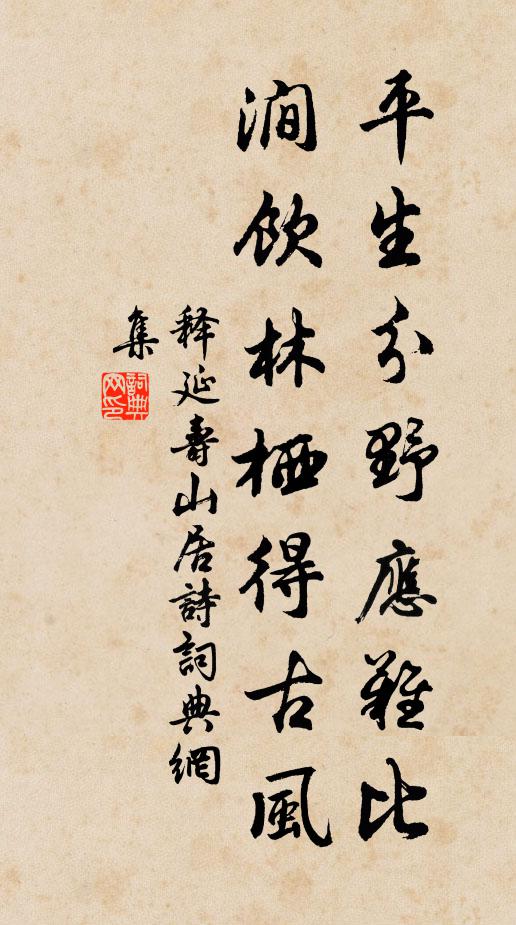 平生分野應難比
澗飲林栖得古風
释延壽山居詩詞典網
集
詞典
网印